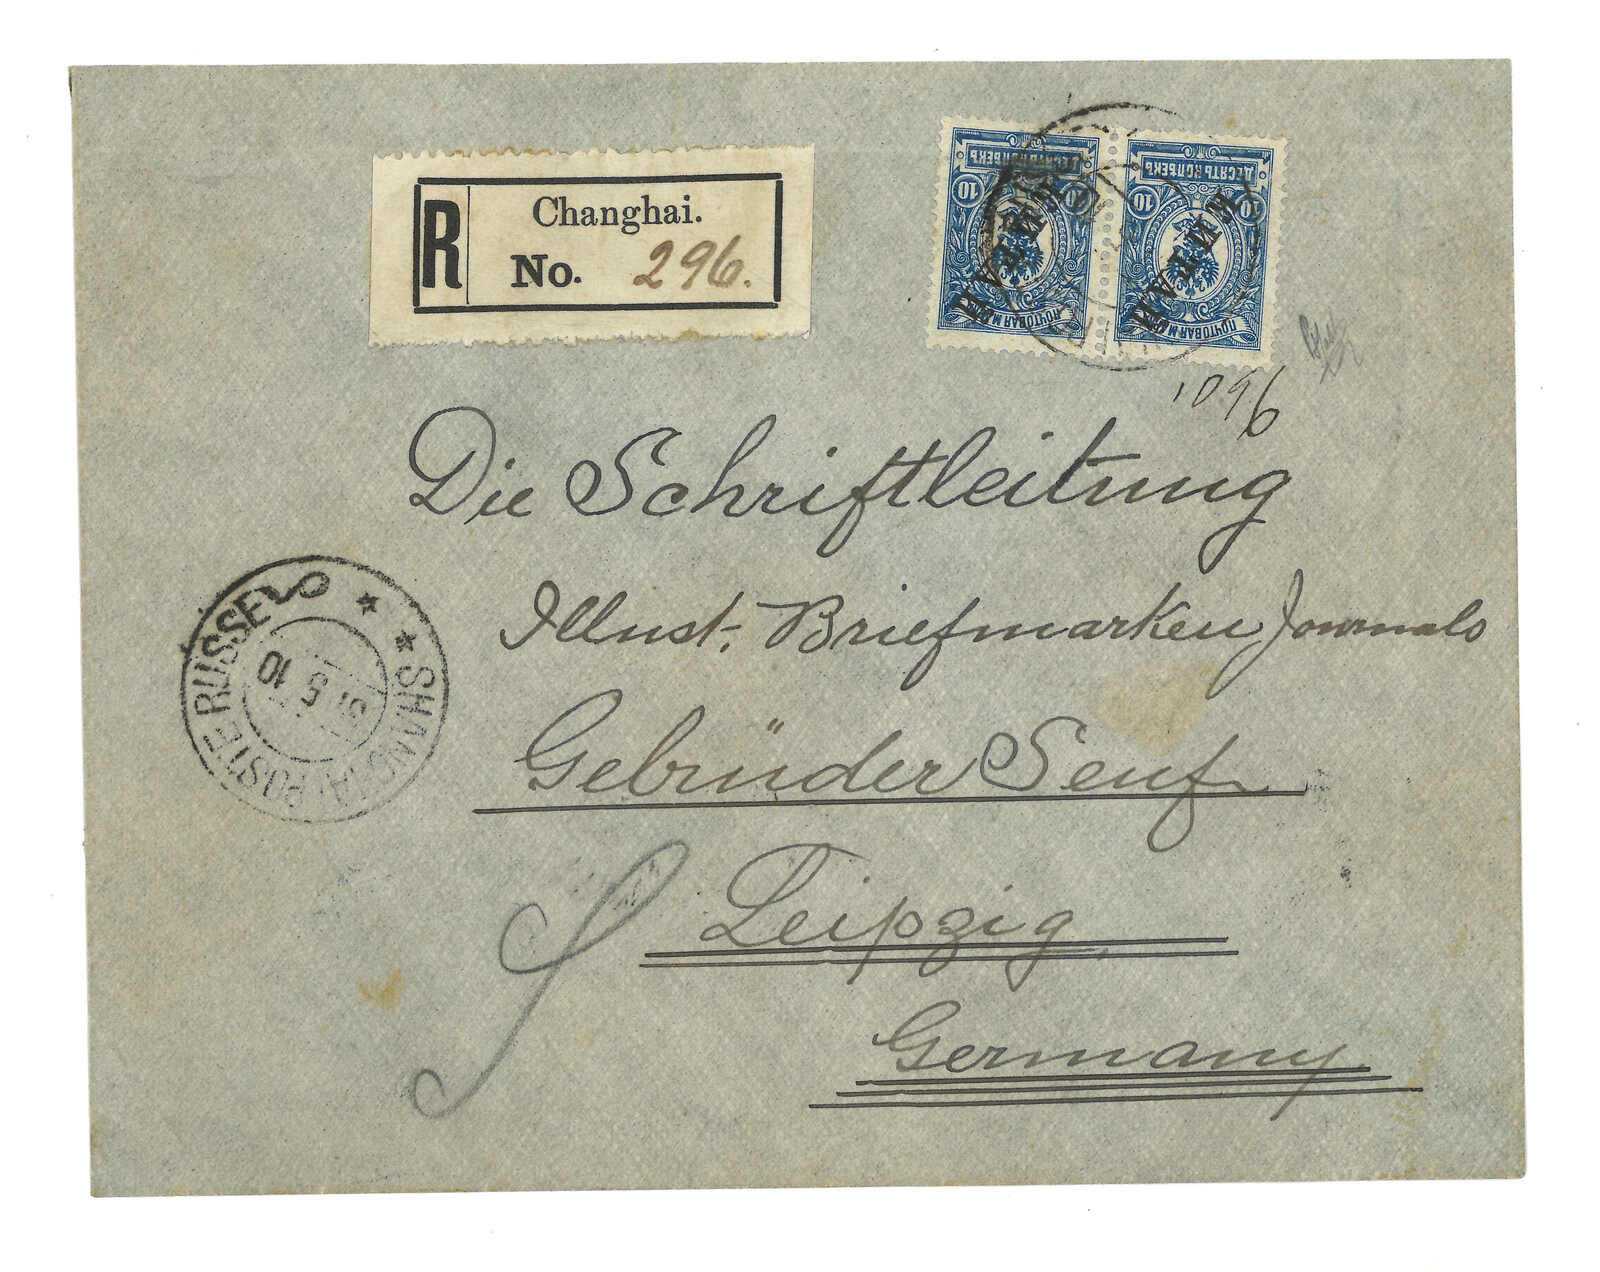 R
Changhai.
No. 296.
ДЕСЯТЬ КОПѢЕКЪ
10 10
КИТАЙ
ПОЧТОВАЯ МАРКА
ДЕСЯТЬ КОПѢЕКЪ
10 10
КИТАЙ
ПОЧТОВАЯ МАРКА
1096
Die Schriftleitung
Illust. Briefmarken Journals
Gebrüder Senf
Leipzig,
Germany.
SHANGHAI POSTE RUSSE
5 10